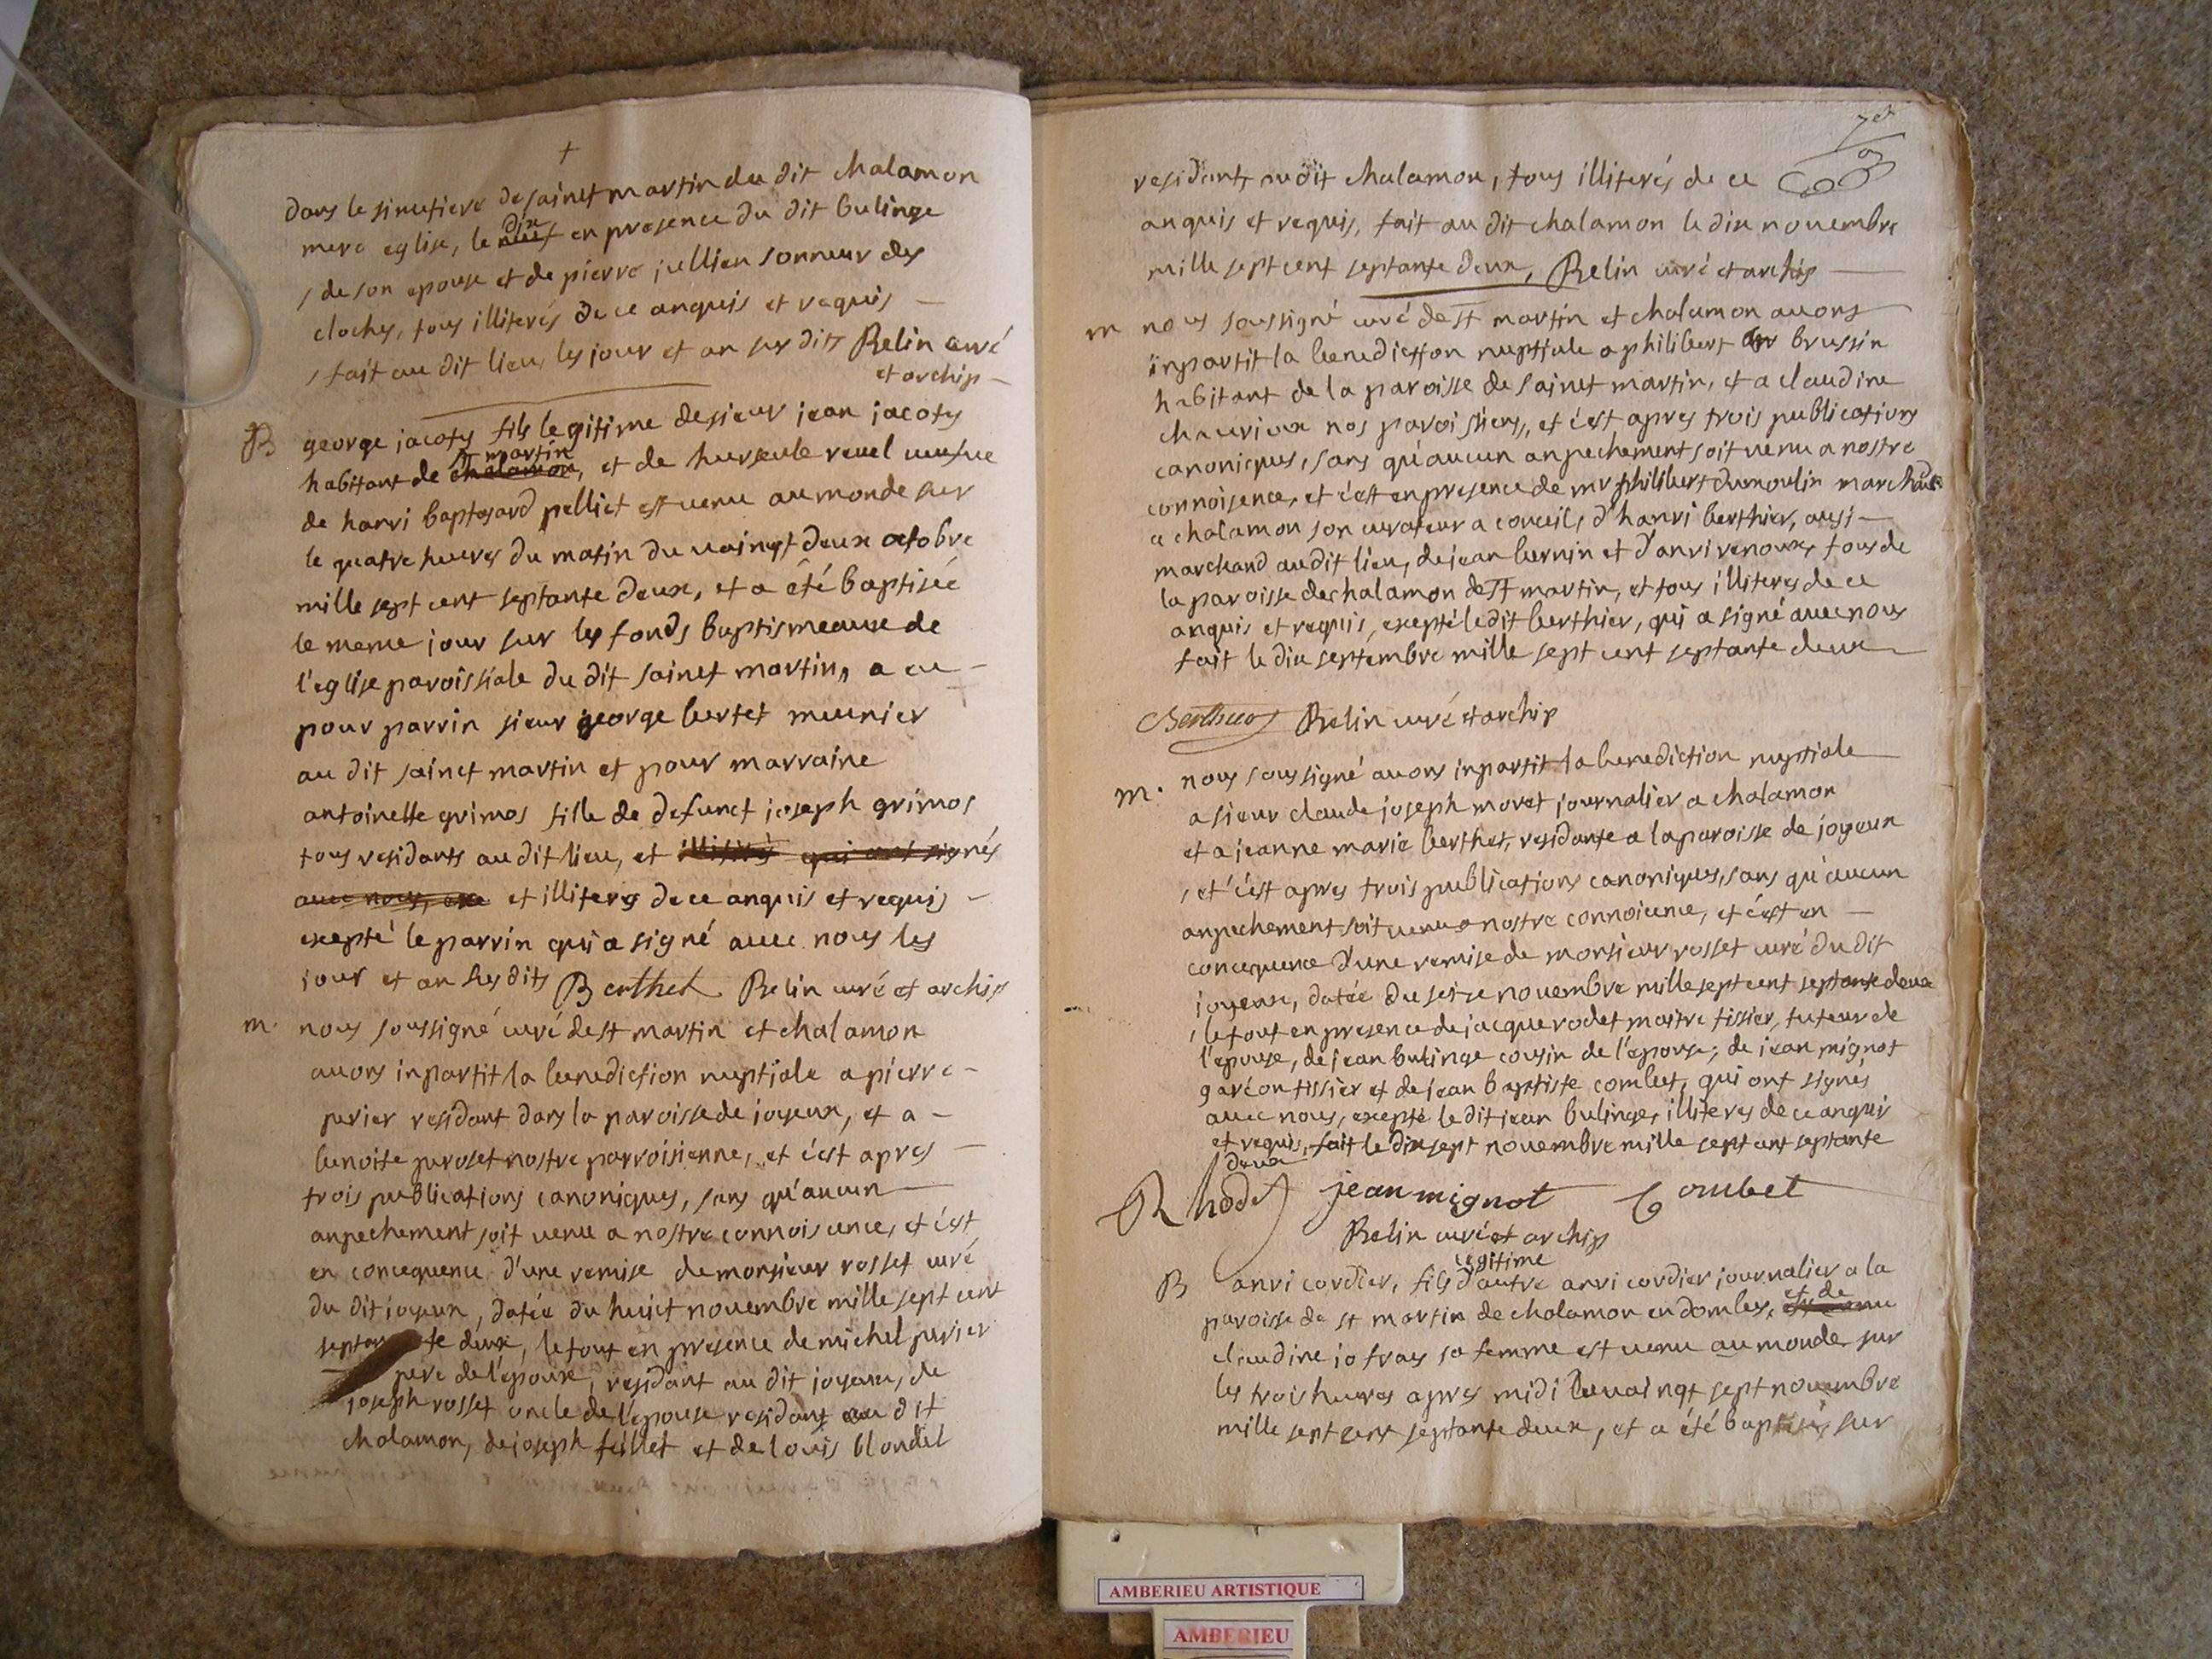 dans le simetiere de sainct martin du dit chalamon
mere eglise, le dix en presence du dit bulinge
, de son epouse et de pierre jullien sonneur des
cloches, tous illiterés de ce anquis et requis
, fait au dit lieu, les jour et an sus dits Relin curé
et archip
B george jacoty fils legitime de sieur jean jacoty
habitant de st martin, et de hurseule revel veufve
de hanri baptasard pelliet est venu au monde sur
le quatre heures du matin du vaingt deux octobre
mille sept cent septante deux, et a êté baptisée
le meme jour sur les fonds baptismeaux de
l'eglise paroîssiale du dit sainct martin, a eu
pour parrin sieur george bertet meunier
au dit sainct martin et pour marraine
antoinette grimos fille de defunct joseph grimos
tous residants au dit lieu, et illiterés qui ont signés
avec nous, et illiterés de ce anquis et requis
exepté le parrin qui a signé avec nous les
jour et an susdits Berthet Relin curé et archip
m. nous soussigné curé de st martin et chalamon
avons inpartit la benediction nuptiale a pierre
perier residant dans la paroisse de joyeux, et a
benoite nostre parroisienne, et c'est apres
trois publications canoniques, sans qu'aucun
anpechement soit venu a nostre connoisence, et c'est
en concequence d'une remise de monsieur rosset curé
du dit joyeux, datée du huict novembre mille sept cent
septante deux, le tout en presence de michel perier
pere de l'epoux, residant au dit joyeux, de
joseph rosset oncle de l'epouse residant au dit
chalamon, de joseph feillet et de louis blondel
residants audit chalamon, tous illiterés de ce
anquis et requis, fait au dit chalamon le dix novembre
mille sept cent septante deux, Relin curé et archip
m nous soussigné curé de st martin et chalamon avons
inpartit la benediction nuptiale a philibert brussin
habitant de la paroisse de sainct martin, et a claudine
chaurioux nos paroissiens, et c'est apres trois publications
canoniques, sans qu'aucun anpechement soit venu a nostre
connoisence, et c'est en presence de mr philibert dumoulin marchand
a chalamon son curateur a conceil, d'hanri berthier, ausi
marchand audit lieu, de jean bernin et d'anri renoux, tous de
la paroisse de chalamon de st martin, et tous illiteres de ce
anquis et requis, exepté le dit berthier, qui a signé avec nous
fait le dix septembre mille sept cent septante deux
Berthier Relin curé et archip
m. nous soussigné avons inpartit la benediction nuptiale
a sieur claude joseph moret journalier a chalamon
et a jeanne marie berthet, residante a la paroisse de joyeux
, et c'est apres trois publications canoniques, sans qu'aucun
anpechement soit venu a nostre connoicence, et c'est en
concequence d'une remise de monsieur rosset curé du dit
joyeux, datée du seize novembre mille sept cent septante deux
, le tout en presence de jacque rodet maitre tissier, tuteur de
l'epouse, de jean bulinge cousin de l'epouse, de jean mignot
garçon tissier et de jean baptiste combet, qui ont signés
avec nous, exepté le dit jean bulinge, illiteres de ce anquis
et requis, fait le dix sept novembre mille sept cent septante
deux
Rhodet jean mignot Combet
Relin curé et archip
B anri cordier, fils legitime d'autre anri cordier journalier a la
paroisse de st martin de chalamon en dombes, et de
claudine jofray sa femme est venu au monde sur
les trois heures apres midi le vaingt sept novembre
mille sept cent septante deux, et a été baptisé, sur
AMBERIEU ARTISTIQUE
AMBERIEU